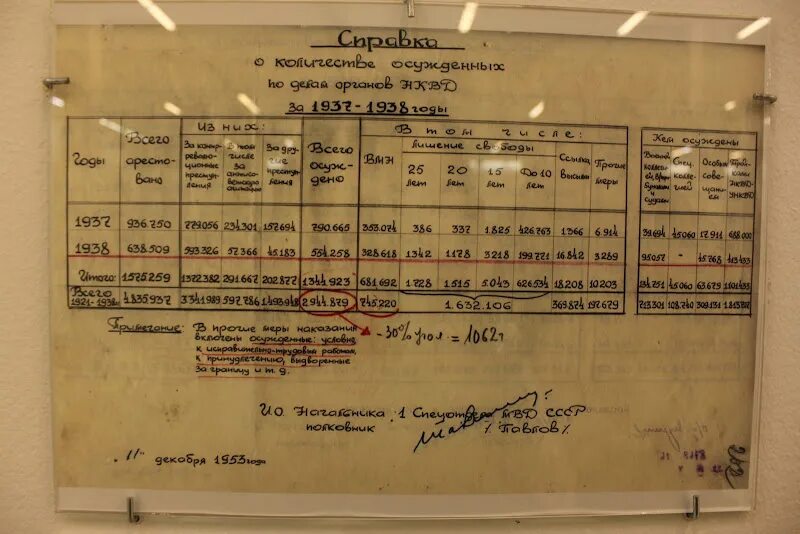 Справка
о количестве осужденных
по делам органов НКВД
за 1937-1938 годы
Годы | Всего арестовано | Из них: За контрреволюционные преступления | В том числе за антисоветскую агитацию | За другие преступления | Всего осуждено | В том числе: ВМН | Лишение свободы 25 лет | 20 лет | 15 лет | До 10 лет | Ссылка, высылка | Прочие меры | Кем осуждены: Спец. коллегией | Особым совещанием | Тройками НКВД-УНКВД
1937 | 936.750 | 779.056 | 234.301 | 157.694 | 790.665 | 353.074 | 386 | 337 | 1.825 | 426.763 | 1.366 | 6.914 | 39.694 | 45.060 | 17.911 | 688.000
1938 | 638.509 | 593.326 | 57.366 | 45.183 | 554.258 | 328.618 | 1342 | 1178 | 3.218 | 199.771 | 16.842 | 3.289 | 95.057 | - | 45.768 | 413.433
Итого: | 1575.259 | 1372.382 | 291.667 | 202.877 | 1344.923 | 681.692 | 1.728 | 1.515 | 5.043 | 626.534 | 18.208 | 10.203 | 134.751 | 45.060 | 63.679 | 1101.433
Всего 1921-1938г. | 4.835.937 | 3.341.989 | 597.786 | 1.493.948 | 2.944.879 | 745.220 | 1.632.106 | 369.874 | 197.679 | 108.740 | 309.131
Примечание: В прочие меры наказания
включены осужденные: условно,
к исправительно-трудовым работам,
к принудлечению, выдворенные
за границу и т. д.
-30% угол = 1062т
И.О. Начальника 1 Спецотдела МВД СССР
полковник /Павлов/
"11" декабря 1953 года